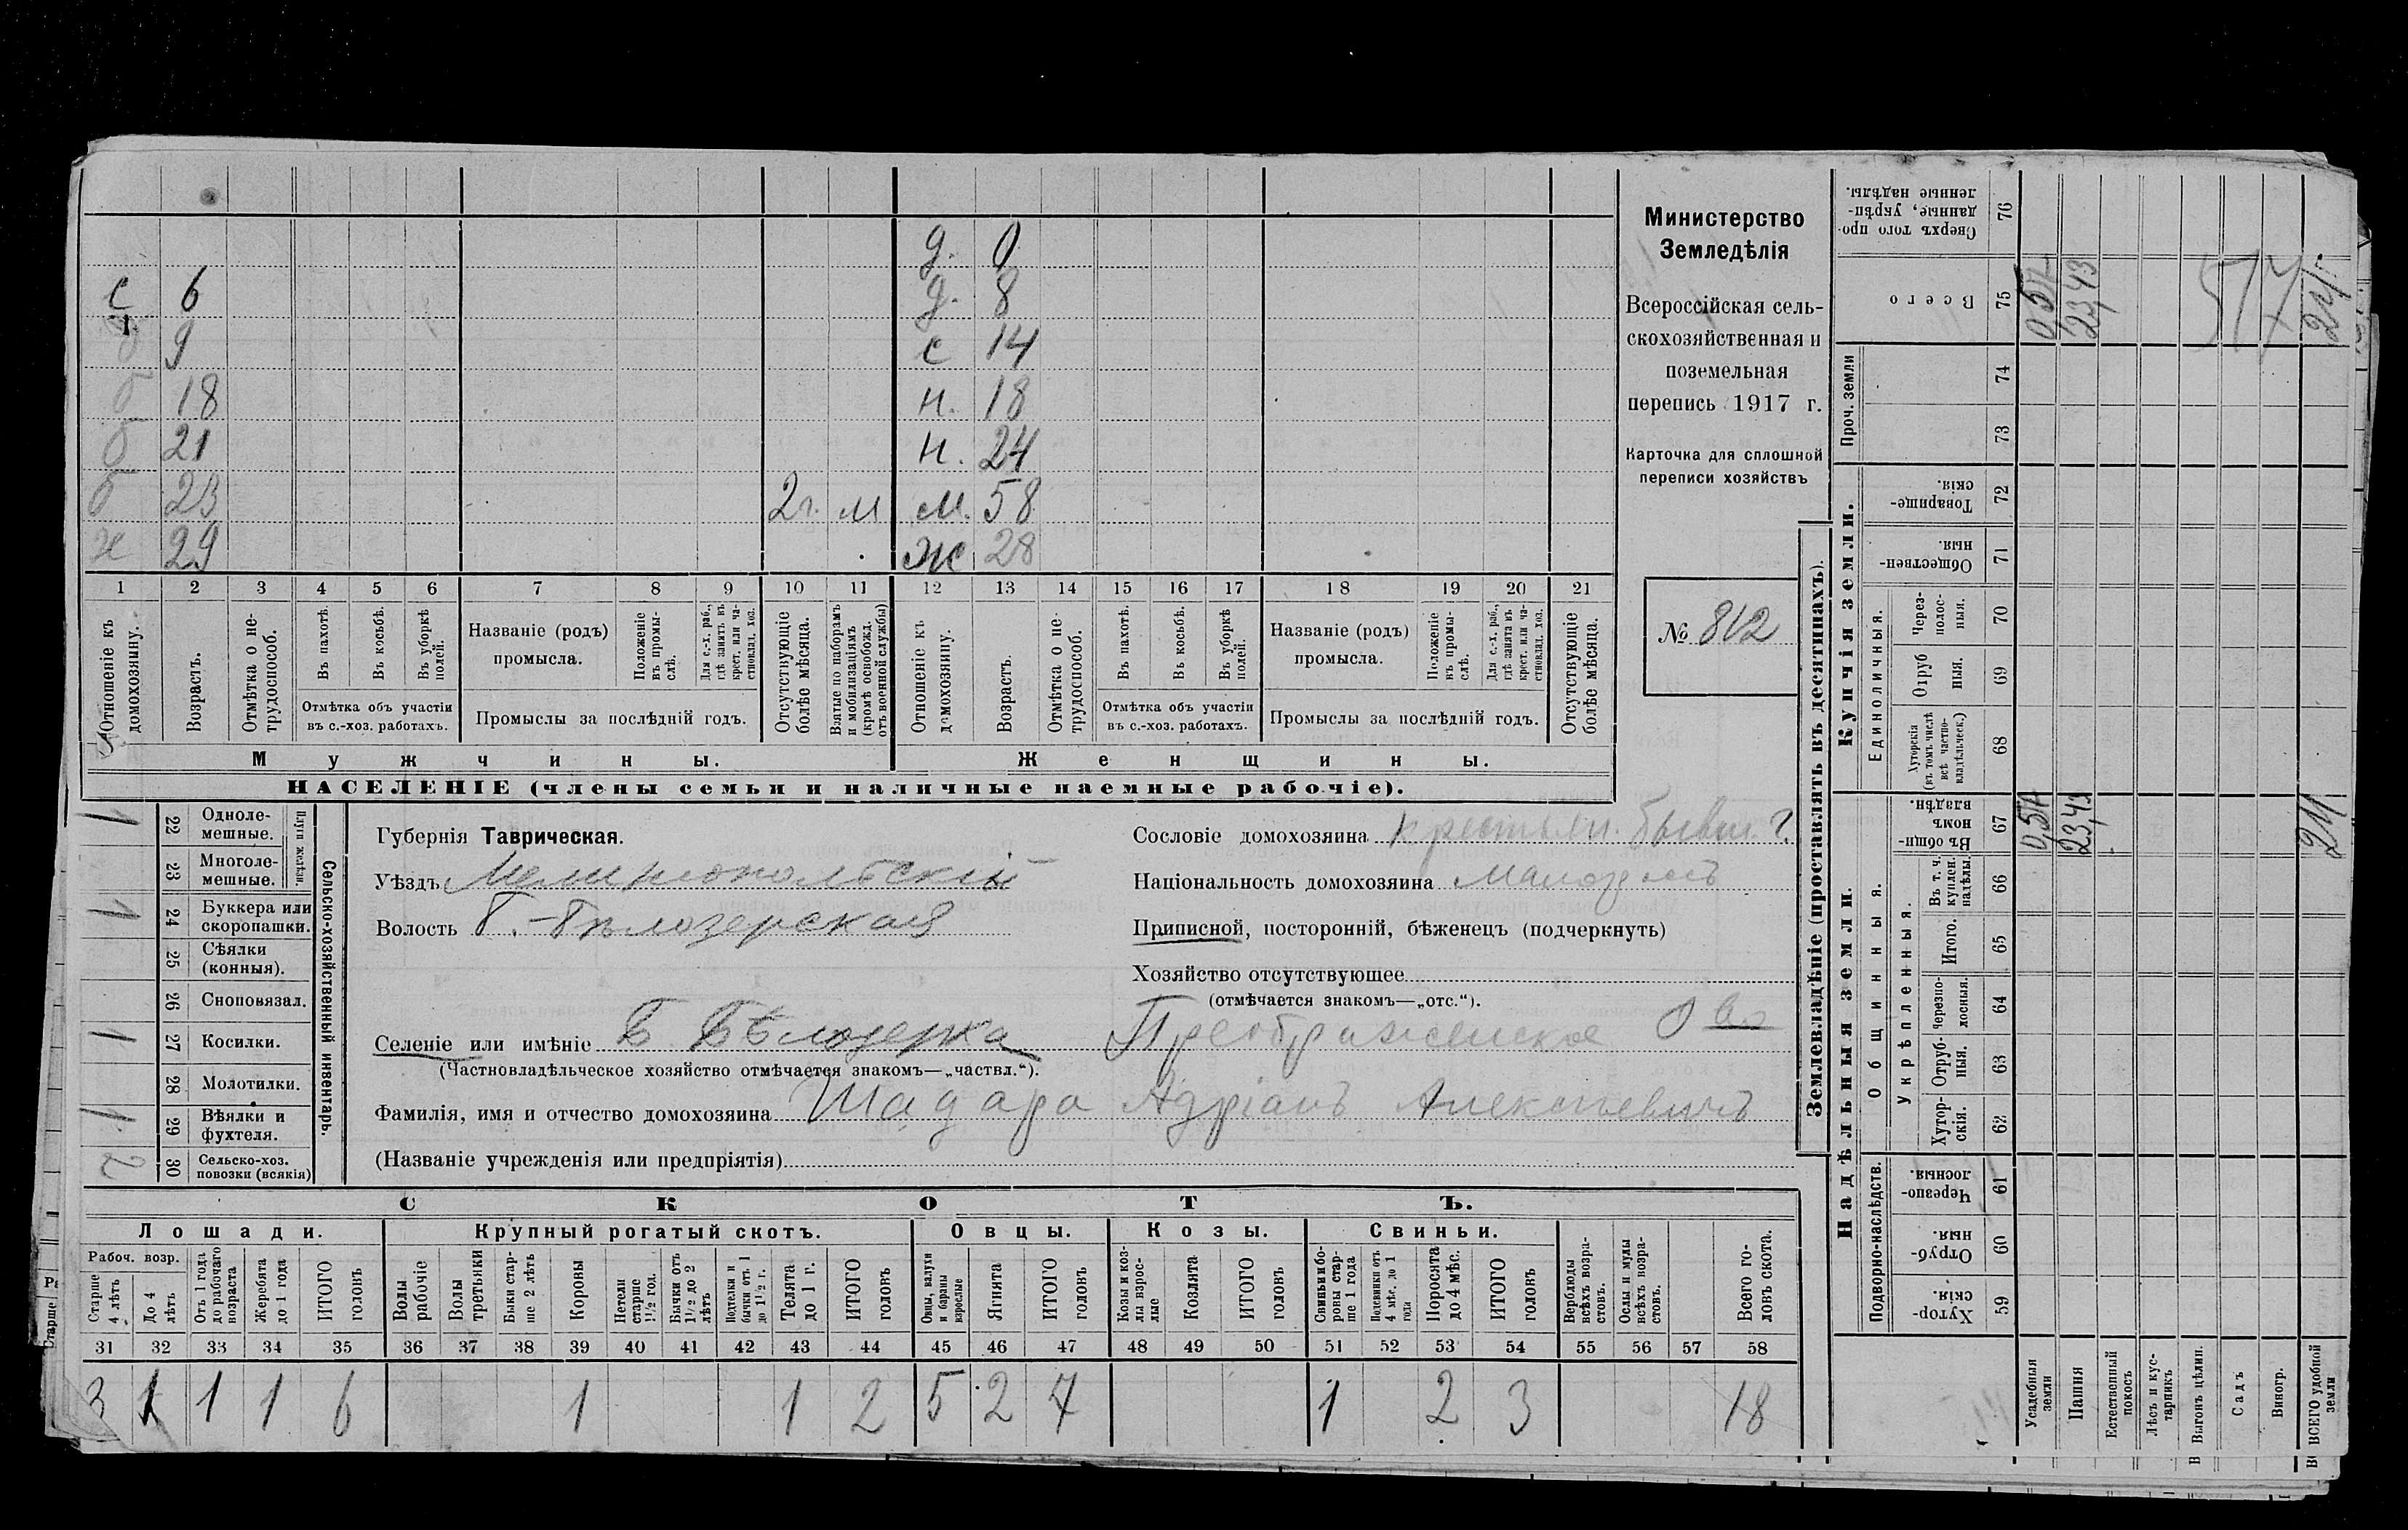 д. 0
с 6 д. 8
б 9 с 14
б 18 н. 18
б 21 н. 24
б 23 2 г. м м. 58
х 29 ж 28
1 2 3 4 5 6 7 8 9 10 11 12 13 14 15 16 17 18 19 20 21
Отношеніе къ домохозяину.
Возрастъ.
Отмѣтка о нетрудоспособ.
Въ пахотѣ.
Въ косьбѣ.
Въ уборкѣ полей.
Отмѣтка объ участіи въ с.-хоз. работахъ.
Названіе (родъ) промысла.
Положеніе въ промыслѣ.
Для с.-х. раб., гдѣ занятъ въ крест. или частновлад. хоз.
Промыслы за послѣдній годъ.
Отсутствующіе болѣе мѣсяца.
Взятые по наборамъ и мобилизаціямъ (кромѣ освобожд. отъ военной службы)
Отношеніе къ домохозяину.
Возрастъ.
Отмѣтка о нетрудоспособ.
Въ пахотѣ.
Въ косьбѣ.
Въ уборкѣ полей.
Отмѣтка объ участіи въ с.-хоз. работахъ.
Названіе (родъ) промысла.
Положеніе въ промыслѣ.
Для с.-х. раб., гдѣ занята въ крест. или частновлад. хоз.
Промыслы за послѣдній годъ.
Отсутствующіе болѣе мѣсяца.
Мужчины. Женщины.
НАСЕЛЕНІЕ (члены семьи и наличные наемные рабочіе).
Министерство
Земледѣлія
Всероссійская сель-
скохозяйственная и
поземельная
перепись 1917 г.
Карточка для сплошной
переписи хозяйствъ
№ 812
Сельско-хозяйственный инвентарь.
Плуги желѣзн.
1 22 Одноле-мешные.
23 Многоле-мешные.
1 24 Буккера или скоропашки.
25 Сѣялки (конныя).
26 Сноповязал.
1 27 Косилки.
28 Молотилки.
1 29 Вѣялки и фухтеля.
2 30 Сельско-хоз. повозки (всякія)
Губернія Таврическая.
Уѣздъ Мелитопольскій
Волость Б.-Бѣлозерская
Сословіе домохозяина крестьян. бывш. г.
Національность домохозяина малорос
Приписной, посторонній, бѣженецъ (подчеркнуть)
Хозяйство отсутствующее
(отмѣчается знакомъ—„отс.“).
Селеніе или имѣніе Б Бѣлозерка Преображенское О во
(Частновладѣльческое хозяйство отмѣчается знакомъ—„частвл.“).
Фамилія, имя и отчество домохозяина Шадара Адріанъ Алексѣевичъ
(Названіе учрежденія или предпріятія)
СКОТЪ.
Лошади. Крупный рогатый скотъ. Овцы. Козы. Свиньи.
Рабоч. возр.
Старше 4 лѣтъ
До 4 лѣтъ
Отъ 1 года до рабочаго возраста
Жеребята до 1 года
ИТОГО головъ
Волы рабочіе
Волы третьяки
Быки старше 2 лѣтъ
Коровы
Нетели старше 1½ год.
Бычки отъ 1½ до 2 лѣтъ
Подтелки и бычки отъ 1 до 1½ г.
Телята до 1 г.
ИТОГО головъ
Овцы, валухи и бараны взрослые
Ягнята
ИТОГО головъ
Козы и козлы взрослые
Козлята
ИТОГО головъ
Свиньи и боровы старше 1 года
Подсвинки отъ 4 мѣс. до 1 года
Поросята до 4 мѣс.
ИТОГО головъ
Верблюды всѣхъ возрастовъ.
Ослы и мулы всѣхъ возрастовъ.
Всего головъ скота.
31 32 33 34 35 36 37 38 39 40 41 42 43 44 45 46 47 48 49 50 51 52 53 54 55 56 57 58
3 1 1 1 6 1 1 2 5 2 7 1 2 3 18
Землевладѣніе (проставлять въ десятинахъ).
Надѣльныя земли. Купчія земли. Проч. земли
Подворно-наслѣдств. Общинныя. Укрѣпленныя. Единоличныя.
59 Хутор-скія.
60 Отруб-ныя.
61 Черезпо-лосныя.
62 Хутор-скія.
63 Отруб-ныя.
64 Черезпо-лосныя.
65 Итого.
66 Въ т. ч. куплен. надѣлы.
67 Въ общин-номъ владѣн.
68 Хуторскія (въ томъ числѣ всѣ частно-владѣльческ.)
69 Отруб ныя.
70 Через-полос-ныя.
71 Обществен-ныя.
72 Товарище-скія.
73
74
75 Всего
76 Сверхъ того про-данные, укрѣп-ленные надѣлы.
Усадебныя земли 0,57 0,57
Пашня 23,43 23,43
Естественный покосъ
Лѣсъ и кус-тарникъ
Выгонъ цѣлин.
Садъ
Виногр.
ВСЕГО удобной земли
517